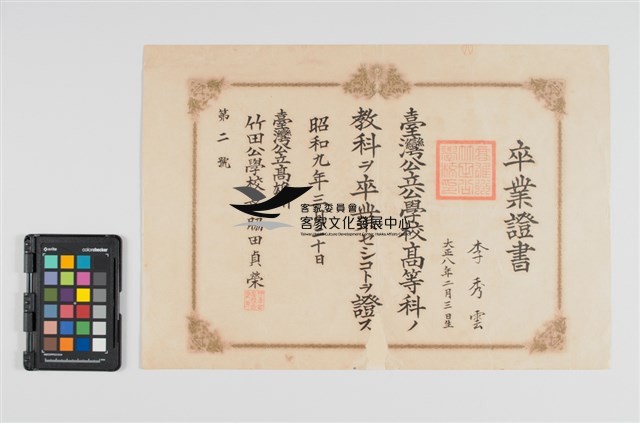 卒業證書
李秀雲
大正八年二月三日生
臺灣公立公學校高等科ノ
教科ヲ卒業セシコトヲ證ス
昭和九年三月 十日
臺灣公立高雄州
竹田公學校 脇田貞榮
第二號
客家委員會
客家文化發展中心
colorchecker